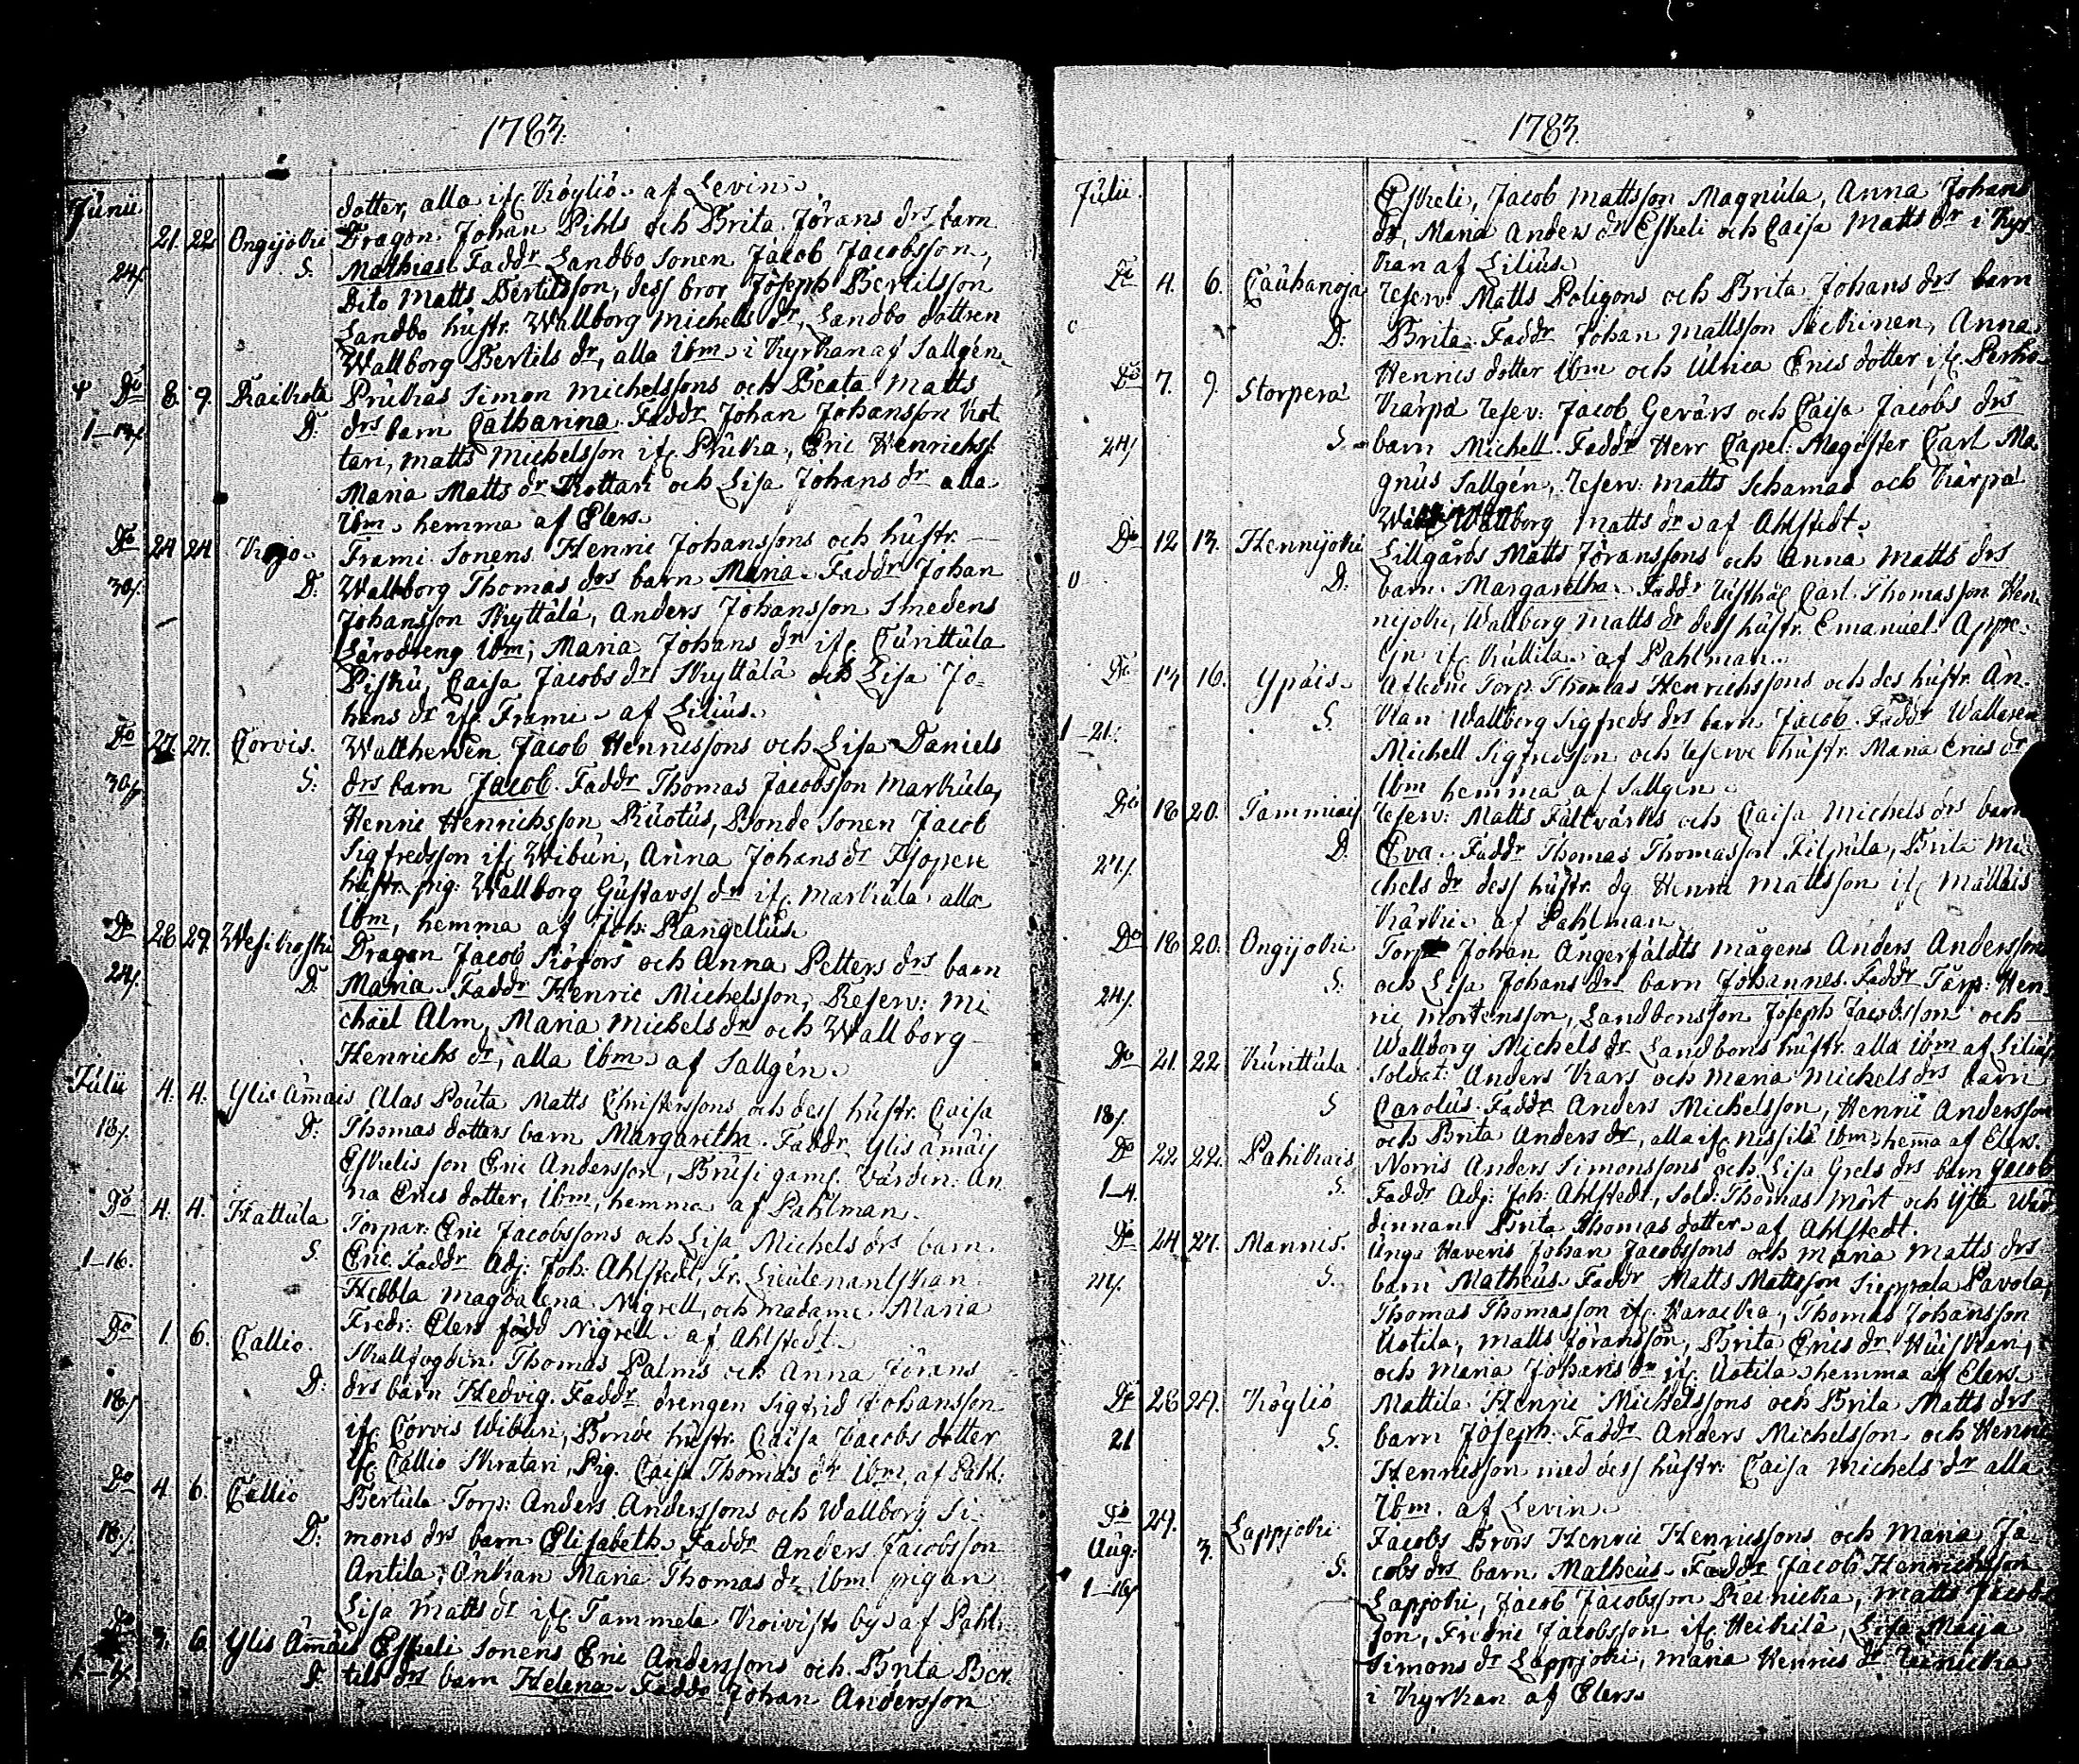 1783.
Junii dotter, alla ifr. Köyliö. af Levin.
21. 22 Ongijoki Dragon Johan Pihls och Brita Jörans drs barn
24/ S. Mathias. Faddr Landbo Sonen Jacob Jacobsson,
dito Matts Bertilsson, dess bror Joseph Bertilsson
Landbo hustr. Wallborg Michels dr, Landbo dottren
Wallborg Bertils dr, alla ibm. i Kyrkan af Sallgén.
Do 8. 9. Raikola Prukas Simon Michelssons och Beata Matts
D. drs barn Catharina. Faddr Johan Johansson Kot
tari, Matts Michelsson ifr. Pruka, Eric Henrichs:
Maria Matts dr Kottari och Lisa Johans dr alla
ibm. hemma af Elers.
Do 24 24 Frami Sonens Henric Johanssons och hustr.
30/. D. Wallborg Thomas drs barn Maria. Faddr Johan
Johansson Skyttälä, Anders Johansson Smedens
Lärodreng ibm, Maria Johans dr ifr. Turittula
Pisku, Caisa Jacobs dr Skyttälä och Lisa Jo-
hans dr ifr. Frami. af Lilius.
Do 27. 27. Corvis. Jacob Henricssons och Lisa Daniels
30/ S. drs barn Jacob. Faddr Thomas Jacobsson Markula,
Henric Henrichsson Ruotus, Bonde Sonen Jacob
Sigfredsson ifr. Wiburi, Anna Johans dr
hustr. pig. Wallborg Gustavs dr ifr. Markula alla
ibm, hemma af Joh: Rangellius.
Do 28 29. Wesikoski Dragon Jacob Siöfors och Anna Petters drs barn
24/. D. Maria. Faddr Henric Michelsson, Reserv: Mi
chäel Alm, Maria Michels dr och Wallborg
Henrichs dr, alla ibm. af Sallgén.
Julii 4. 4. Ylis Ämais Alas Pouta Matts Christerssons och dess hustr. Caisa
18/. D. Thomas dotters barn Margaretha. Faddr Ylis ämäis
Eskelis son Eric Andersson, Brusi gamf. Värdin: An
na Erics dotter, ibm, hemma af Pahlman.
Do 4. 4. Hattula Torpar: Eric Jacobssons och Lisa Michels drs barn
1-16. S. Eric. Faddr Adj: Joh: Ahlstedt, Fr. Lieutenantskan
Hebbla Magdalena Nigrell, och madame Maria
Fredr: Elers född Nigrell. af Ahlstedt.
Do 1. 6. Callio. Skallfogden Thomas Palms och Anna Jörans
18/ D. drs barn Hedvig. Faddr drengen Sigfrid Johansson
ifr. Corvis Wiburi, Bonde hustr. Caisa Jacobs dotter
ifr. Callio Skratari, Pig. Caisa Thomas dr ibm, af Pahl:
Do 4. 6. Callio Bertula Torp: Anders Anderssons och Wallborg Si-
18/. D. mons drs barn Elisabeth. Faddr Anders Jacobsson
Antila, Enkan Maria Thomas dr ibm pigan
Lisa Matts dr ifr. Tammela Koivisto by. af Pahl:
Do 3. 6. Ylis Ämäis Eskeli Sonens Eric Anderssons och Brita Ber
D. tils drs barn Helena. Faddr Johan Andersson
1783.
Julii. Eskeli, Jacob Mattsson Magnula, Anna Johans
dr, Maria Anders dr Eskeli och Caisa Matts dr i Kyr
kan af Lilius.
Do 4. 6. Cauhanoja Reserv: Matts Poligons och Brita Johans drs barn
D: Brita. Faddr Johan Mattsson Anna
Henrics dotter ibm och Ulrica Erics dotter ifr.
Do 7. 9. Storperä Kärpä reserv: Jacob Gevärs och Caisa Jacobs drs
24/ S. barn Michell. Faddr Herr Capel: Magister Carl Ma
gnus Sallgén, reserv: Matts Schamas och Kärpä
Wallborg Matts dr. af Ahlstedt.
Do 12 13. Hennijoki Lillgårds Matts Jöranssons och Anna Matts drs
D. barn Margaretha. Faddr Carl Thomasson Hen
nijoki, Wallborg Matts dr dess hustr. Emanuel Appe-
lin ifr. Kuttila. af Pahlman.
Do 14 16. Ypäis. Afledne Torp: Thomas Henrichssons och des hustr. än-
1-21. S. kan Wallborg Sigfreds drs barn Jacob. Faddr
Michell Sigfredsson och reserve hustr. Maria Erics dr
ibm hemma af Sallgén.
Do 18 20. Tammiais Reserv: Matts Fältvärks och Caisa Michels drs barn
27/. D. Eva. Faddr Thomas Thomasson Filpula, Brita Mi
chels dr dess hustr. dg Henric Mattsson ifr. Mallais
Kärki. af Pahlman.
Do 18 20. Ongijoki Torp Johan Ångerfäldts mågens Anders Anderssons
24/. S. och Lisa Johans drs barn Johannes. Faddr Torp: Hen
ric Mortensson, Landbonsson Joseph Jacobsson och
Wallborg Michels dr Landbons hustr. alla ibm af Lilius
Do 21. 22 Kurittula Soldat: Anders Kars och Maria Michels drs barn
18/. S Carolus. Faddr Anders Michelsson, Henric Andersson
och Brita Anders dr, alla ifr Nissilä ibm, hemma af Elers.
Do 22 22. Pahikais Norris Anders Simonssons och Lisa Grels drs barn Jacob
1-4. S. Faddr Adj: Joh: Ahlstedt, Sold: Thomas Mört och Ylä Wär
dinnan Brita Thomas dotter. af Ahlstedt.
Do 24 27. Mannis. Unga Haveris Johan Jacobssons och Maria Matts drs
S. barn Matheus. Faddr Matts Mattsson Sieppala Pavola,
Thomas Thomasson ifr. Karaikka, Thomas Johansson
Uotila, Matts Jöransson, Brita Erics dr Huiskari,
och Maria Johans dr ifr. Uotila. hemma af Elers.
Do 28 29. Köyliö Mattila Henric Michelssons och Brita Matts drs
21 S. barn Joseph. Faddr Anders Michelsson och Henric
Henricsson med dess hustr: Caisa Michels dr alla
ibm. af Levin.
Do 29. Aug: 3. Lappjoki Jacobs Brors Henric Henricssons och Maria Ja-
1-16/ S. cobs drs barn Matheus. Faddr Jacob Henrichsson
Lapjoki, Jacob Jacobsson Reinicka, Matts Jacobs
son, Fredric Jacobsson ifr. Heikilä, Lisa Maija
Simons dr Lappjoki, Maria Henrics dr Reinicka
i Kyrkan af Elers.